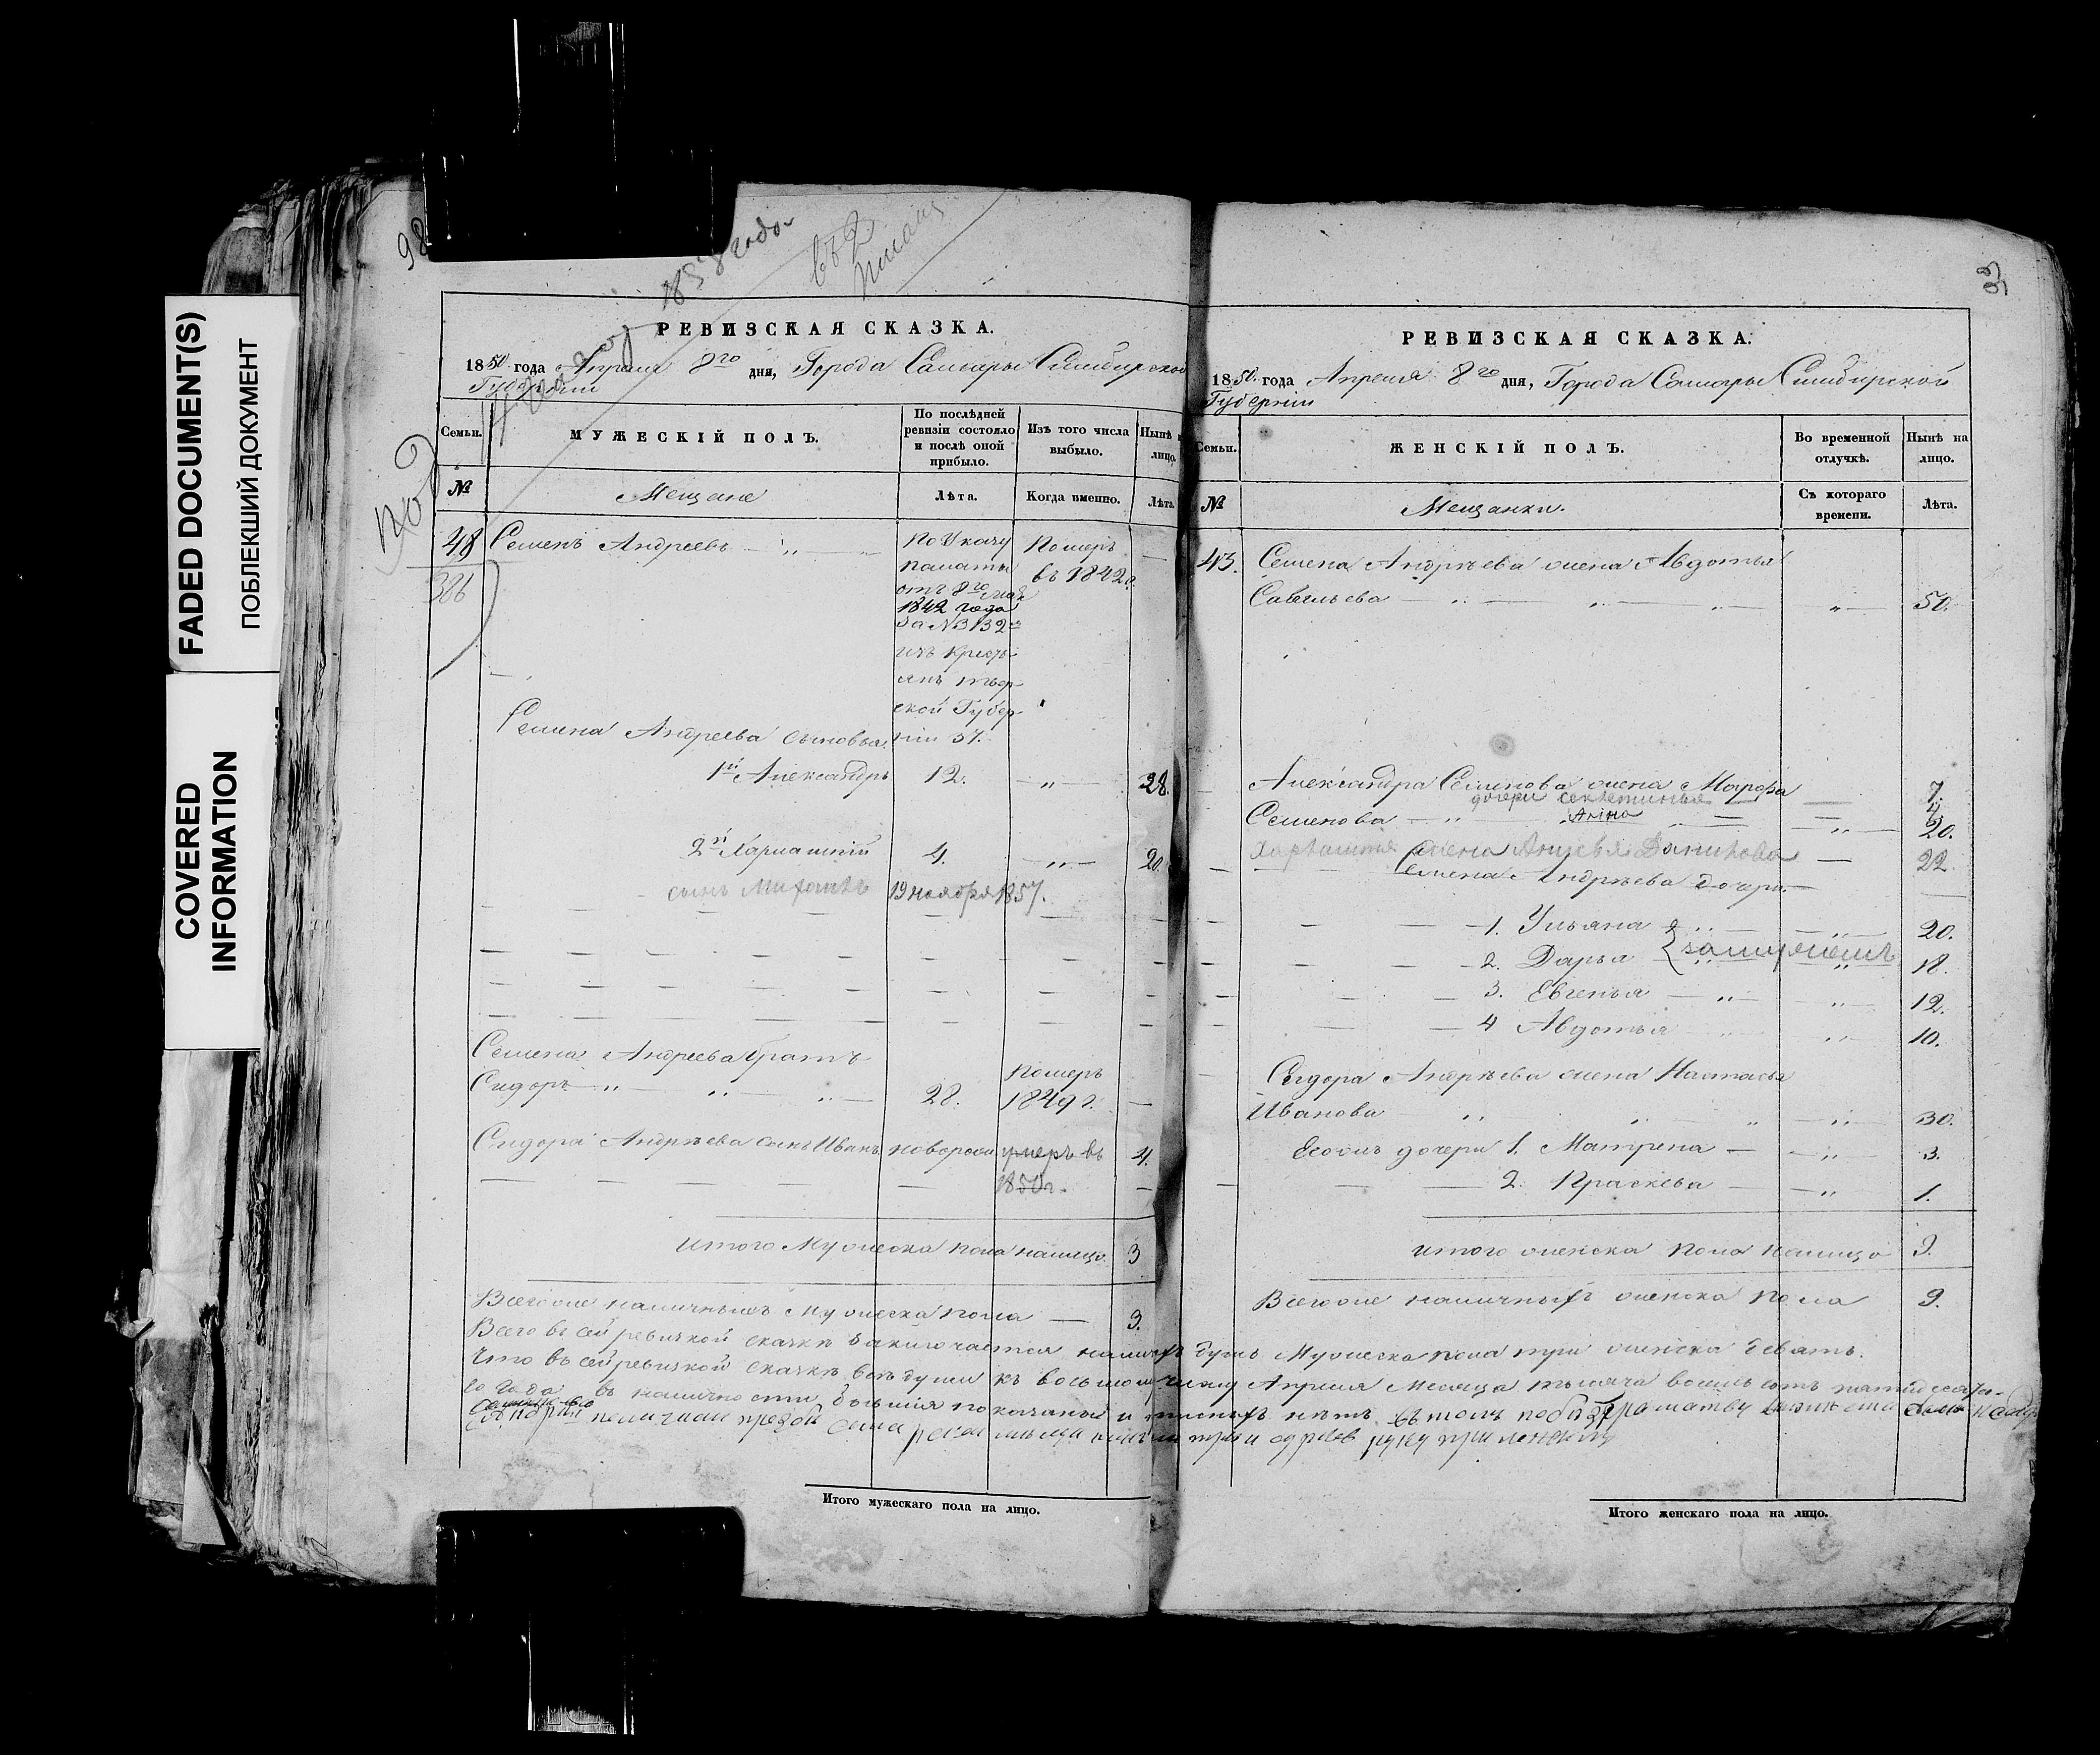 FADED DOCUMENT(S)
ПОБЛЕКШИЙ ДОКУМЕНТ
COVERED
INFORMATION
98
1858 года
РЕВИЗСКАЯ СКАЗКА.
1850 года Апреля 8го дня, Города Самары Симбирской
Губернии
Семьи.
МУЖЕСКІЙ ПОЛЪ.
По послѣдней ревизіи состояло и послѣ оной прибыло.
Изъ того числа выбыло.
Нынѣ на лицо.
№
Мещане
Лѣта.
Когда именно.
Лѣта.
48
386
Семенъ Андреевъ
По Указу
палаты
отъ 8го мая
1842 года
за № 3132
изъ Кресть-
янъ твер-
ской Губер-
ніи 37.
Померъ
въ 1842 г.
Семена Андреева сыновья
1й Александръ 12. 28.
2й Харлампій 4. 20.
сынъ Михаилъ 19 ноября 1857.
Семена Андреева братъ
Сидоръ 28. померъ 1849 г.
Сидора Андрѣева сынъ Иванъ новорож умеръ въ 4.
1850 г.
Итого Мужеска пола налицо 3
Всего же наличныхъ Мужеска пола 3.
Итого мужескаго пола на лицо.
РЕВИЗСКАЯ СКАЗКА.
1850 года Апреля 8го дня, Города Самары Симбирской
Губерніи
Семьи.
ЖЕНСКІЙ ПОЛЪ.
Во временной отлучкѣ.
Нынѣ на лицо.
№
Мещанки.
Съ котораго времени.
Лѣта.
43. Семена Андрѣева жена Авдотья
Савельева 50.
Александра Семенова жена Марфа 7.
дочери
Анна 4
Семенова 20.
жена Данилова 22
Семена Андрѣева дочери
1. Ульяна 20.
2. Дарья замужемъ 18.
3. Евгенья 12.
4 Авдотья 10.
Сидора Андрѣева жена Настасья
Иванова 30.
Ихъ дочери 1. Матрена 3.
2. Праскева 1.
Итого женска пола налицо 9.
Всего же наличныхъ женска пола 9.
Всего въ сей ревизкой сказкѣ заключается наличныхъ душъ Мужеска пола три женска девять.
Что въ сей ревизкой сказкѣ всѣ души къ восьмому числу Апреля Месяца тысяча восемь сотъ пятидесята-
го года въ наличности бывшія показаны и писныхъ нѣтъ. въ томъ
Итого женскаго пола на лицо.